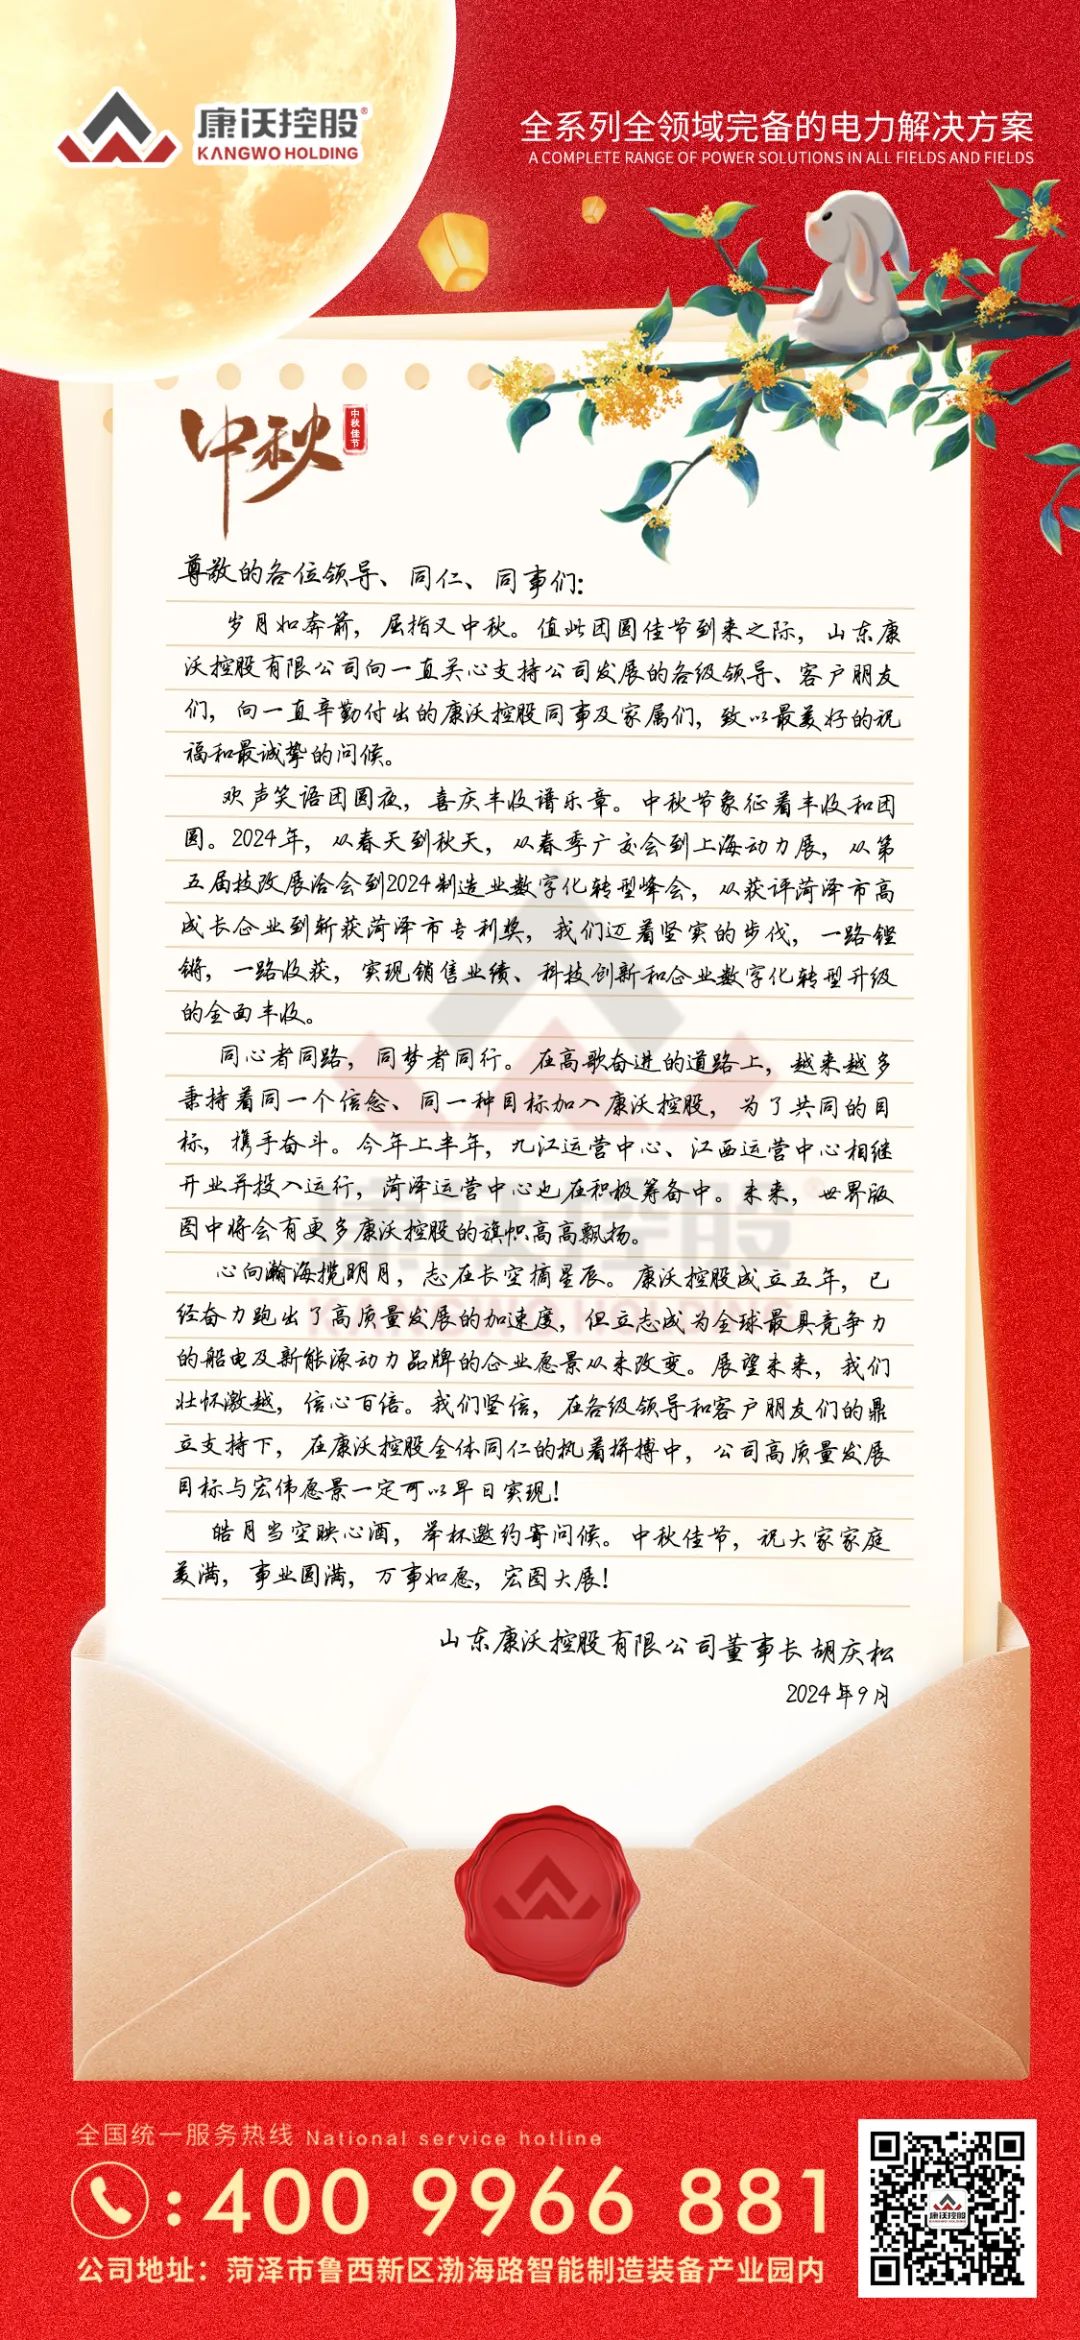 康沃控股®
KANGWO HOLDING
全系列全领域完备的电力解决方案
A COMPLETE RANGE OF POWER SOLUTIONS IN ALL FIELDS AND FIELDS
中秋
中秋佳节
尊敬的各位领导、同仁、同事们:
岁月如奔箭，屈指又中秋。值此团圆佳节到来之际，山东康
沃控股有限公司向一直关心支持公司发展的各级领导、客户朋友
们，向一直辛勤付出的康沃控股同事及家属们，致以最美好的祝
福和最诚挚的问候。
欢声笑语团圆夜，喜庆丰收谱乐章。中秋节象征着丰收和团
圆。2024年，从春天到秋天，从春季广交会到上海动力展，从第
五届技改展洽会到2024制造业数字化转型峰会，从获评菏泽市高
成长企业到斩获菏泽市专利奖，我们迈着坚实的步伐，一路铿
锵，一路收获，实现销售业绩、科技创新和企业数字化转型升级
的全面丰收。
同心者同路，同梦者同行。在高歌奋进的道路上，越来越多
秉持着同一个信念、同一种目标加入康沃控股，为了共同的目
标，携手奋斗。今年上半年，九江运营中心、江西运营中心相继
开业并投入运行，菏泽运营中心也在积极筹备中。未来，世界版
图中将会有更多康沃控股的旗帜高高飘扬。
心向瀚海揽明月，志在长空摘星辰。康沃控股成立五年，已
经奋力跑出了高质量发展的加速度，但立志成为全球最具竞争力
的船电及新能源动力品牌的企业愿景从未改变。展望未来，我们
壮怀激越，信心百倍。我们坚信，在各级领导和客户朋友们的鼎
立支持下，在康沃控股全体同仁的执着拼搏中，公司高质量发展
目标与宏伟愿景一定可以早日实现！
皓月当空映心酒，举杯邀约寄问候。中秋佳节，祝大家家庭
美满，事业圆满，万事如愿，宏图大展！
山东康沃控股有限公司董事长 胡庆松
2024年9月
康沃控股®
KANGWO HOLDING
全国统一服务热线 National service hotline
:400 9966 881
公司地址：菏泽市鲁西新区渤海路智能制造装备产业园内
康沃控股
KANGWO HOLDING